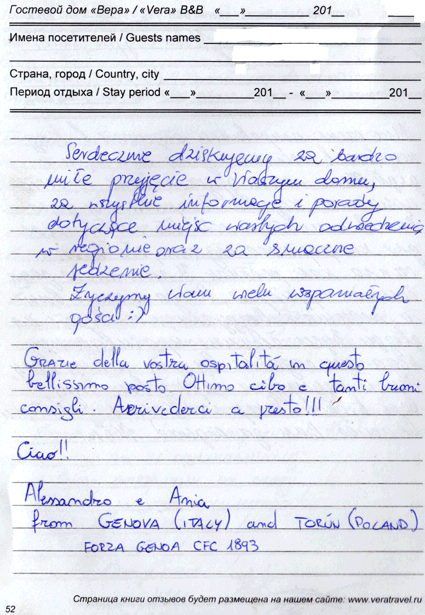 Гостевой дом «Вера» / «Vera» B&B «___»__________ 201__
Имена посетителей / Guests names
Страна, город / Country, city
Период отдыха / Stay period «___»_________201__ - «___»_________201_
Serdecznie dziękujemy za bardzo
miłe przyjęcie w Waszym domu,
za wszystkie informacje i porady
dotyczące miejsc wartych odwiedzenia
w regionie oraz za smaczne
jedzenie.
Życzymy Wam wielu wspaniałych
gości :)
GRAZIE della vostra ospitalità in questo
bellissimo posto Ottimo cibo e tanti buoni
consigli. Arrivederci a presto!!!
Ciao!!
Alessandro e Ania
from GENOVA (ITALY) and TORUŃ (POLAND)
FORZA GENOA CFC 1893
Страница книги отзывов будет размещена на нашем сайте: www.veratravel.ru
52